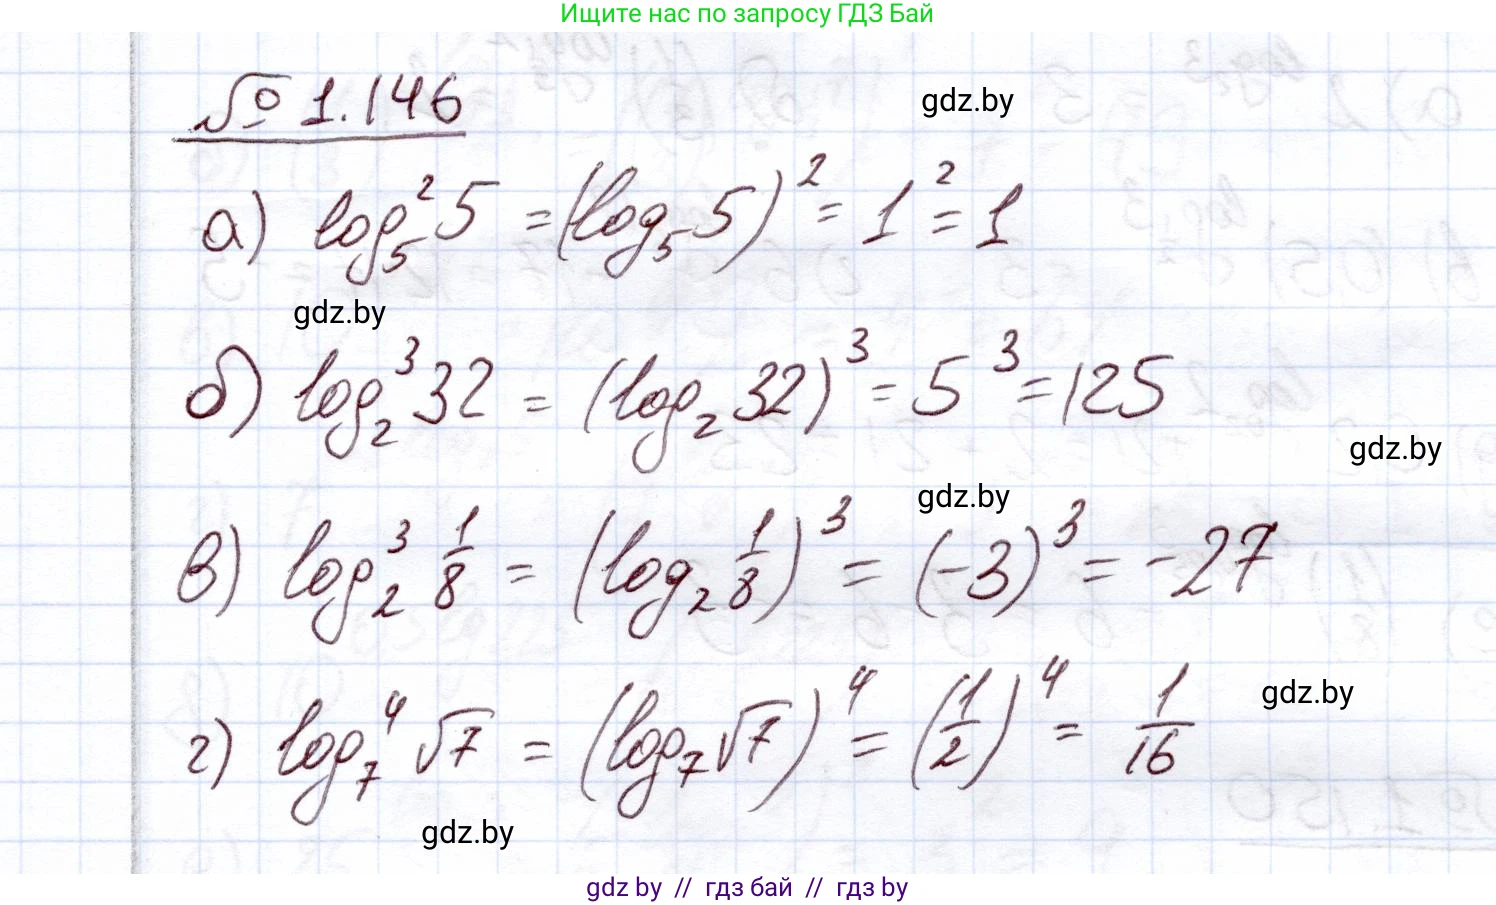 Ищите нас по запросу ГДЗ Бай
№ 1.146
gdz.by
а) log₅² 5 = (log₅ 5)² = 1² = 1
gdz.by
б) log₂³ 32 = (log₂ 32)³ = 5³ = 125
gdz.by
gdz.by
в) log₂³ 1/8 = (log₂ 1/8)³ = (-3)³ = -27
gdz.by
г) log₇⁴ √7 = (log₇ √7)⁴ = (1/2)⁴ = 1/16
gdz.by
gdz by // гдз бай // гдз by